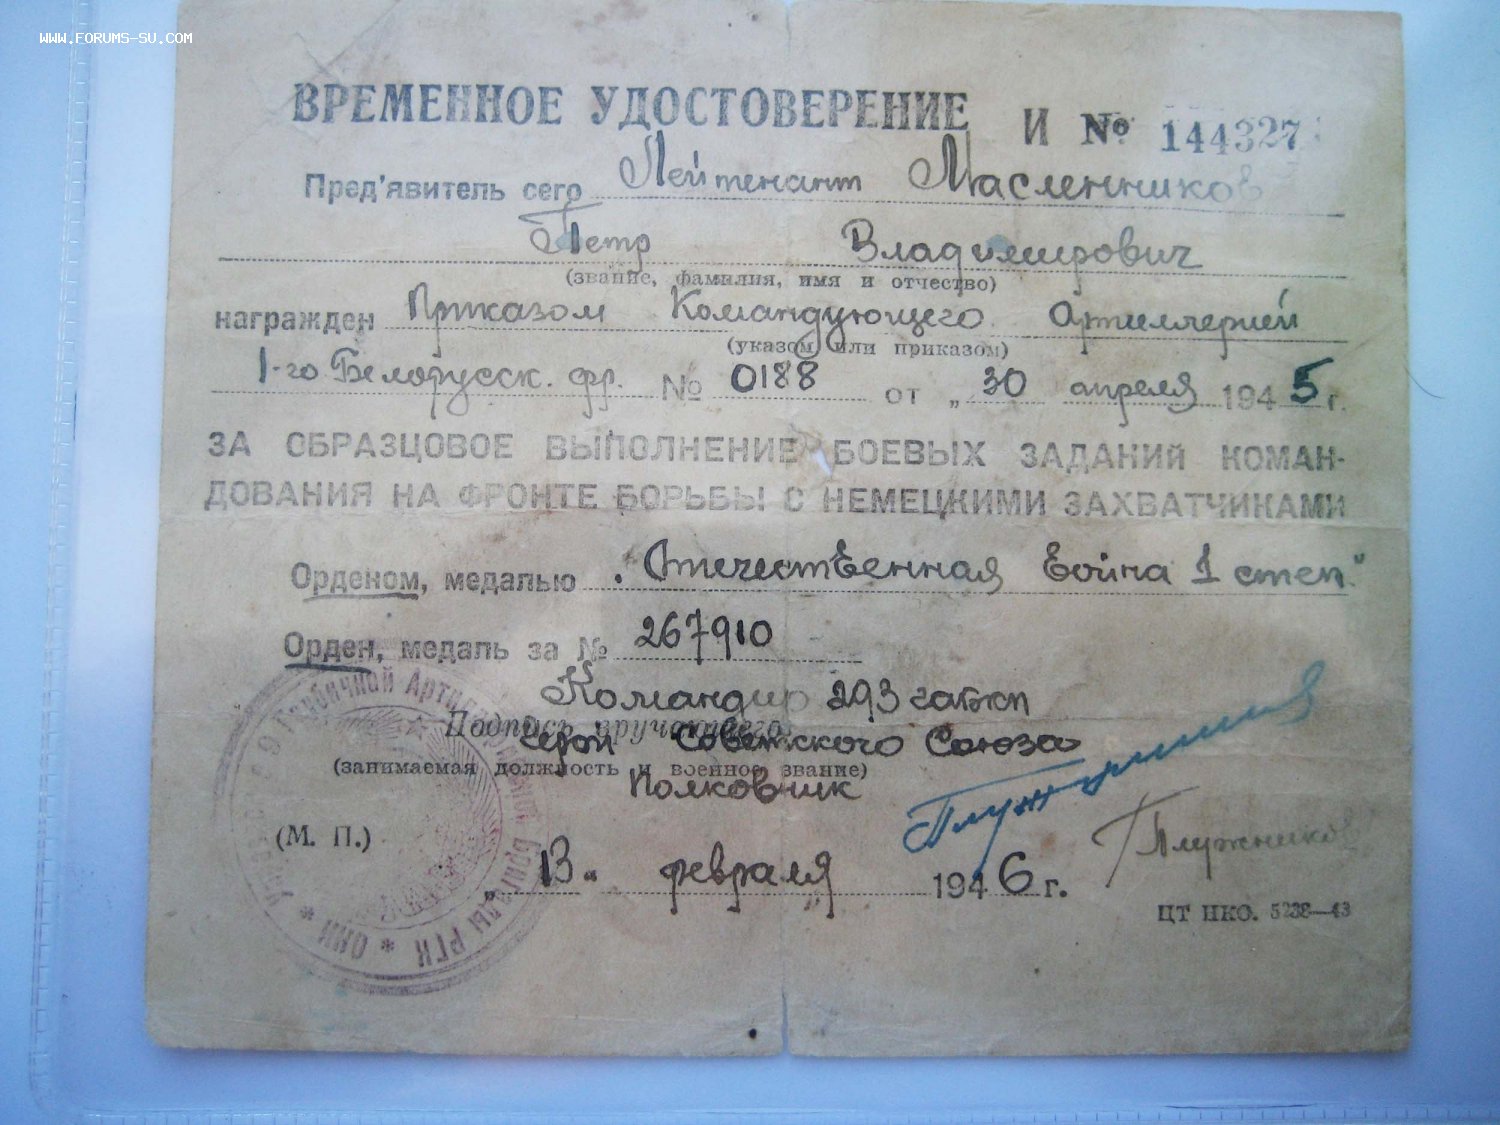 WWW.FORUMS-SU.COM
ВРЕМЕННОЕ УДОСТОВЕРЕНИЕ И № 144327
Пред'явитель сего Лейтенант Масленников
Петр Владимирович
(звание, фамилия, имя и отчество)
награжден Приказом Командующего Артиллерией
(указом или приказом)
1-го Белорусск. фр. № 0188 от „30 апреля 1945 г.
ЗА ОБРАЗЦОВОЕ ВЫПОЛНЕНИЕ БОЕВЫХ ЗАДАНИЙ КОМАН-
ДОВАНИЯ НА ФРОНТЕ БОРЬБЫ С НЕМЕЦКИМИ ЗАХВАТЧИКАМИ
Орденом, медалью „Отечественная война 1 степ."
Орден, медаль за № 267910
Командир 293
Подпись вручающего
Герой Советского Союза
(занимаемая должность и военное звание)
Полковник
Плужников
(М. П.)
„13" февраля 1946 г.
ЦТ НКО. 5238—43
Артиллерийской Бригады РГК * ОНИ *